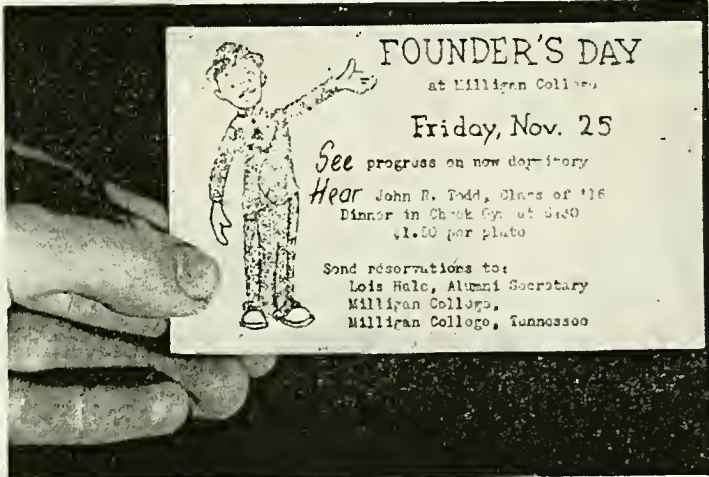 FOUNDER'S DAY
at Milligan College
Friday, Nov. 25
See progress on new dormitory
Hear John R. Todd, Class of '16
Dinner in Cheek Gym at
$1.50 per plate
Send reservations to:
Lois Hale, Alumni Secretary
Milligan College,
Milligan College, Tennessee